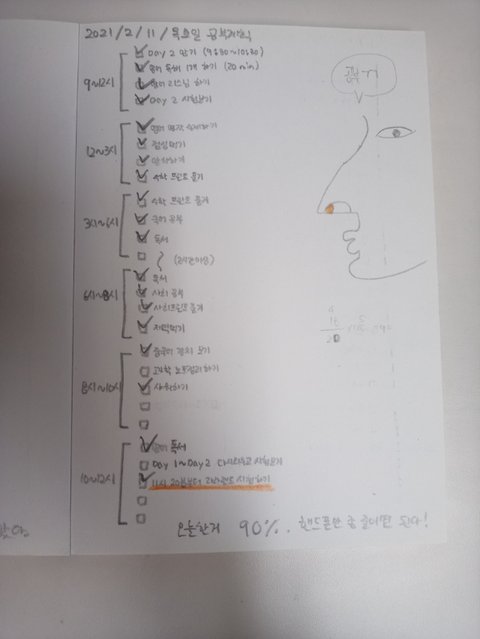 2021/2/11/목요일 공부계획
9~12시
Day 2 만기 (9:30~10:30)
영어 독해 1개 하기 (20min)
영어 리스닝 하기
Day 2 시험보기
12~3시
영어
점심먹기
하기
수학 프린트 풀기
3시~6시
수학 프린트 풀기
국어 공부
독서
(2시간이상)
6시~8시
독서
사회 공부
사회프린트 풀기
저녁먹기
8시~10시
중국어 강의 보기
과학 노트정리하기
샤워하기
10~12시
영어 독서
Day 1~Day2 다시외우고 시험보기
11시 20분부터 시청하기
오늘한거 90%. 핸드폰만 좀 줄이면 된다!